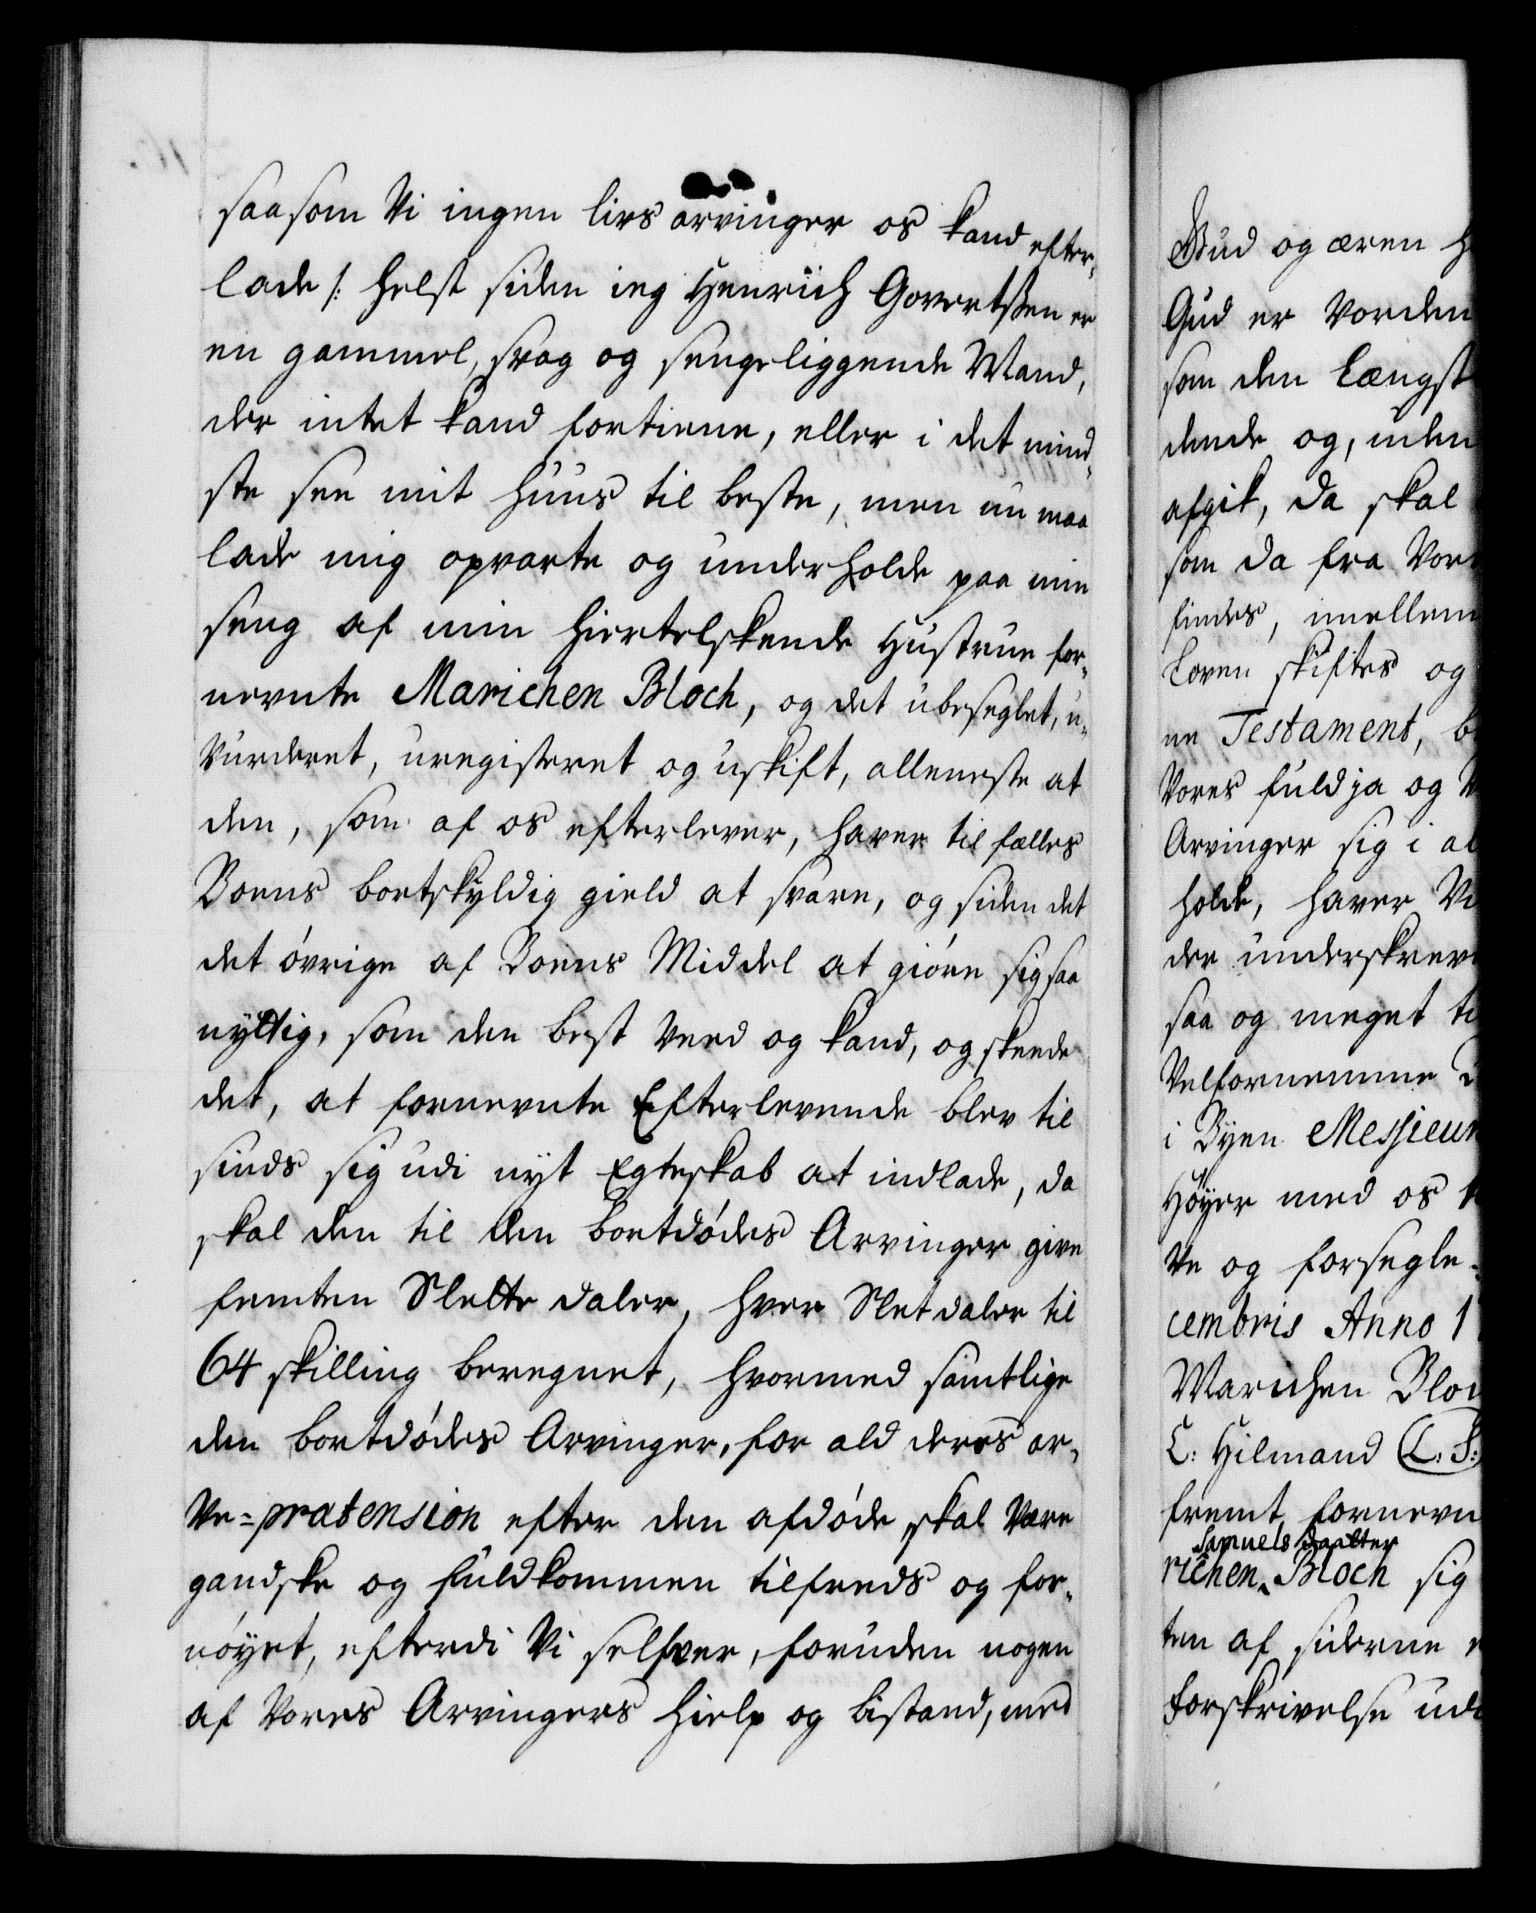 saasom Vi ingen lirs arvinger os kand efter-
lade /: helst siden ieg Henrich Govertssen er
en gammel, svag og sengeliggende Mand,
der intet kand fortiene, eller i det mind-
ste see mit Huus til beste, men nu maa
lade mig opvarte og underholde paa min
seng af min Hiertelskende Hustrue for-
nevnte Marichen Bloch, og det ubeseglet, u-
Vurderet, uregisteret og uskift, alleneste at
den, som af os efterlever, haver til fælles
Boens bortskyldig gield at svare, og siden det
det óvrige af Boens Middel at gióre sig saa
nyttig, som den best Veed og kand, og skeede
det, at fornevnte Efterlevende blev til
sinds sig udi nyt Egteskab at indlade, da
skal den til den bortdódes Arvinger give
femten Slette daler, hver Slet daler til
64 skilling beregnet, hvormed samtlige
den bortdódes Arvinger, for ald deres ar-
Ve=prætension efter den afdóde skal Være
gandske og fuldkommen tilfreds og for-
nóyet, efterdi Vi selfver, foruden nogen
af Vores Arvingers Hielp og bistand, med
Gud og æren H
Gud er Vorden
som den Længst
dende og, uden
afgik, da skal
som da fra Vor
findes, imellem
Loven skiftes og
ne Testament, b
Vores fuld ja og V
Arvinger sig i al
holde, haver Vi
der underskrev
saa og meget ti
Velfornemme
i Byen Messieur
Höyer med os
Ve og forsegle
cembris Anno 1
Marichen Bloc
C: Hilmand (L: S:)
fremt fornevn
Samuels daatter
richen Bloch sig
ten af siderne
Forskrivelse udi